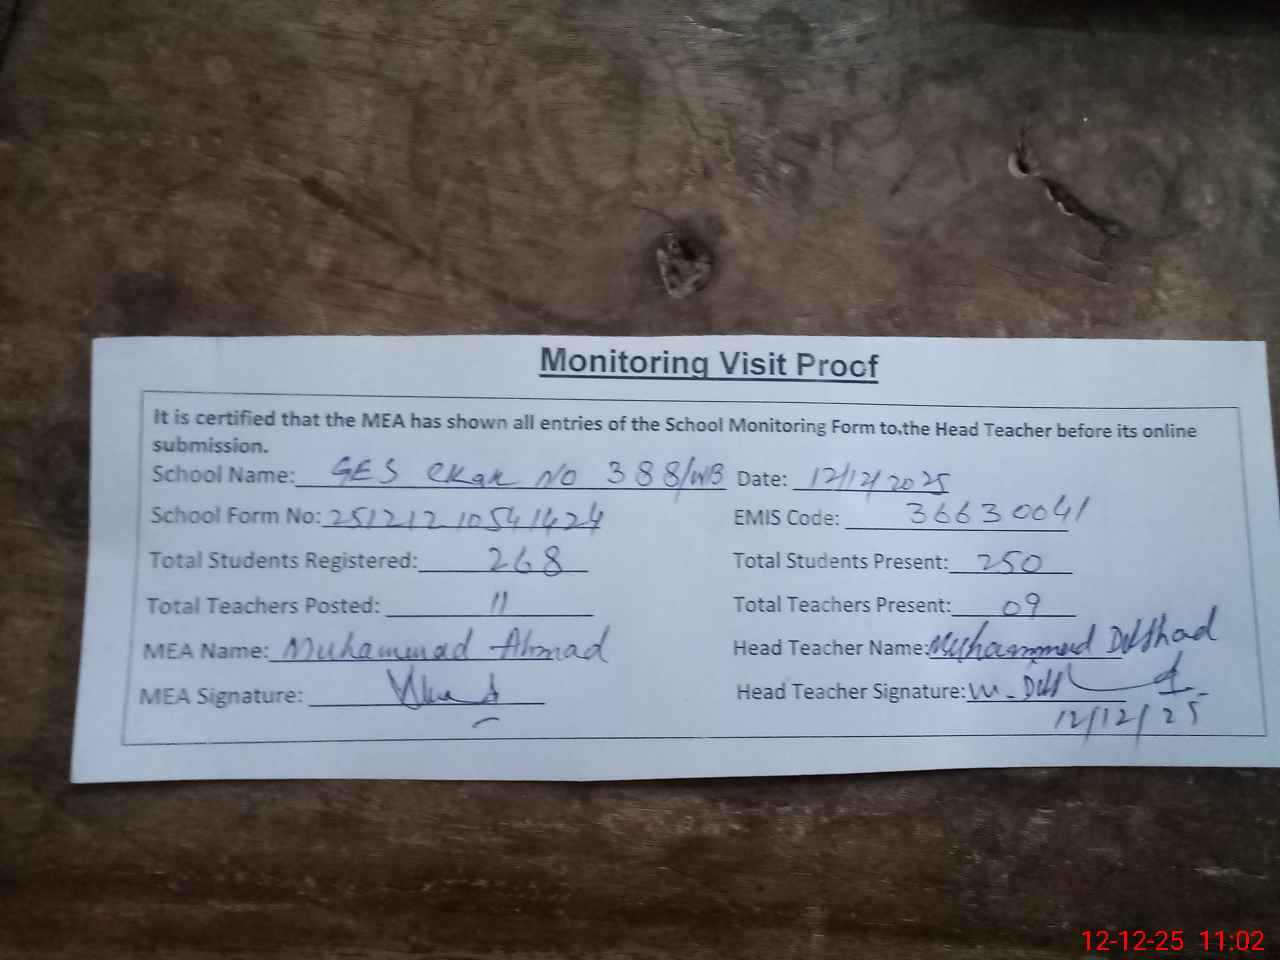 Monitoring Visit Proof
It is certified that the MEA has shown all entries of the School Monitoring Form to the Head Teacher before its online
submission.
School Name: GES Ckak No 388/WB Date: 12/12/2025
School Form No: 25121210541424 EMIS Code: 36630041
Total Students Registered: 268 Total Students Present: 250
Total Teachers Posted: 11 Total Teachers Present: 09
MEA Name: Muhammad Ahmad Head Teacher Name: Muhammad Dilshad
MEA Signature: Head Teacher Signature:
12/12/25
12-12-25 11:02